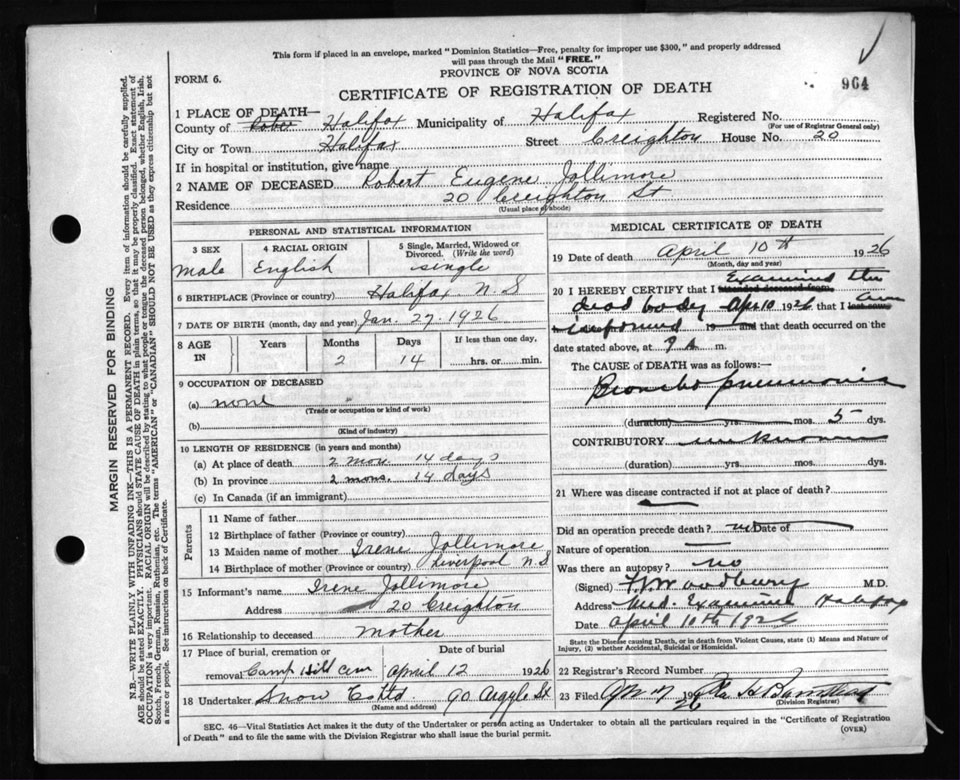 This form if placed in an envelope, marked "Dominion Statistics—Free, penalty for improper use $300," and properly addressed
will pass through the Mail "FREE."
964
FORM 6.
PROVINCE OF NOVA SCOTIA
CERTIFICATE OF REGISTRATION OF DEATH
1 PLACE OF DEATH—
County of Halifax Municipality of Halifax Registered No.
(For use of Registrar General only)
City or Town Halifax Street Creighton House No. 20
If in hospital or institution, give name
2 NAME OF DECEASED Robert Eugene Jollimore
Residence 20 Creighton St
(Usual place of abode)
PERSONAL AND STATISTICAL INFORMATION
3 SEX 4 RACIAL ORIGIN 5 Single, Married, Widowed or Divorced. (Write the word)
Male English single
6 BIRTHPLACE (Province or country) Halifax N.S
7 DATE OF BIRTH (month, day and year) Jan. 27. 1926
8 AGE IN Years Months Days If less than one day,
2 14 hrs. or min.
9 OCCUPATION OF DECEASED
(a) none
(Trade or occupation or kind of work)
(b)
(Kind of industry)
10 LENGTH OF RESIDENCE (in years and months)
(a) At place of death 2 mon. 14 days
(b) In province 2 mons. 14 days
(c) In Canada (if an immigrant)
Parents
11 Name of father
12 Birthplace of father (Province or country)
13 Maiden name of mother Irene Jollimore
14 Birthplace of mother (Province or country) Liverpool N.S
15 Informant's name Irene Jollimore
Address 20 Creighton
16 Relationship to deceased mother
17 Place of burial, cremation or removal Camp Hill Cem
Date of burial
April 12 1926
18 Undertaker Snow Co Ltd 90 Argyle St
(Name and address)
MEDICAL CERTIFICATE OF DEATH
19 Date of death April 10th 1926
(Month, day and year)
Examined the
20 I HEREBY CERTIFY that I attended deceased from
dead body Apr 10 1926 that I last saw
19 and that death occurred on the
date stated above, at 9 A. m.
The CAUSE of DEATH was as follows:—
Broncho pneumonia
(duration) yrs. mos. 5 dys.
CONTRIBUTORY unknown
(duration) yrs. mos. dys.
21 Where was disease contracted if not at place of death?
Did an operation precede death? no Date of
Nature of operation
Was there an autopsy? no
(Signed) Woodbury M.D.
Address Med. Examiner Halifax
Date April 10th 1926
State the Disease causing Death, or in death from Violent Causes, state (1) Means and Nature of
Injury, (2) whether Accidental, Suicidal or Homicidal.
22 Registrar's Record Number
23 Filed 26
(Division Registrar)
SEC. 46—Vital Statistics Act makes it the duty of the Undertaker or person acting as Undertaker to obtain all the particulars required in the "Certificate of Registration
of Death" and to file the same with the Division Registrar who shall issue the burial permit.
(OVER)
MARGIN RESERVED FOR BINDING
N.B.—WRITE PLAINLY WITH UNFADING INK—THIS IS A PERMANENT RECORD. Every item of information should be carefully supplied.
AGE should be stated EXACTLY. PHYSICIANS should STATE CAUSE OF DEATH in plain terms, so that it may be properly classified. Exact statement of
OCCUPATION is very important. RACIAL ORIGIN will be described by stating to what people or tongue the deceased person belonged, whether English, Irish,
Scotch, French, German, Russian, Ruthenian, etc. The terms "AMERICAN" or "CANADIAN" SHOULD NOT BE USED as they express citizenship but not
a race or people. See instructions on back of Certificate.